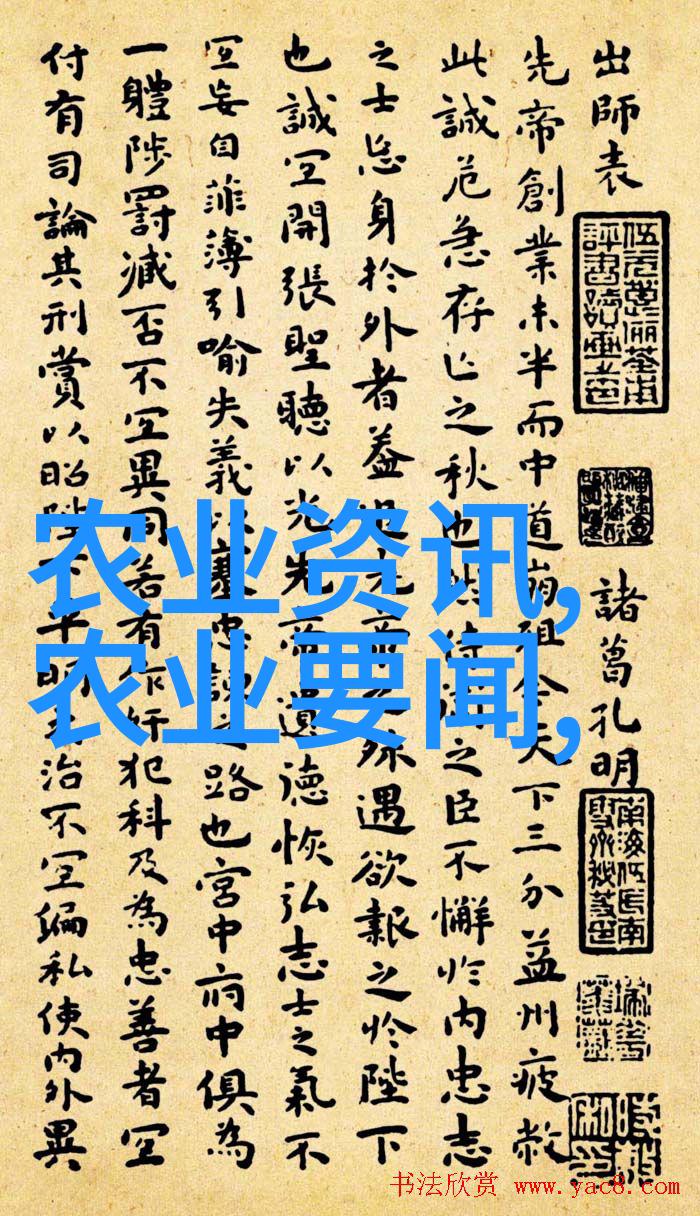 出師表
諸葛孔明
先帝創業未半而中道崩殂今天下三分益州疲敝
此誠危急存亡之秋也然侍衛之臣不懈於内忠志
之士忘身於外者蓋追先帝之殊遇欲報之於陛下
也誠宜開張聖聽以光先帝遺德恢弘志士之氣不
宜妄自菲薄引喻失義以塞忠諫之路也宮中府中俱為
一體陟罰臧否不宜異同若有作奸犯科及為忠善者宜
付有司論其刑賞以昭陛下平明之治不宜偏私使内外異
农业资讯,
农业要闻,
书法欣赏 www.yac8.com